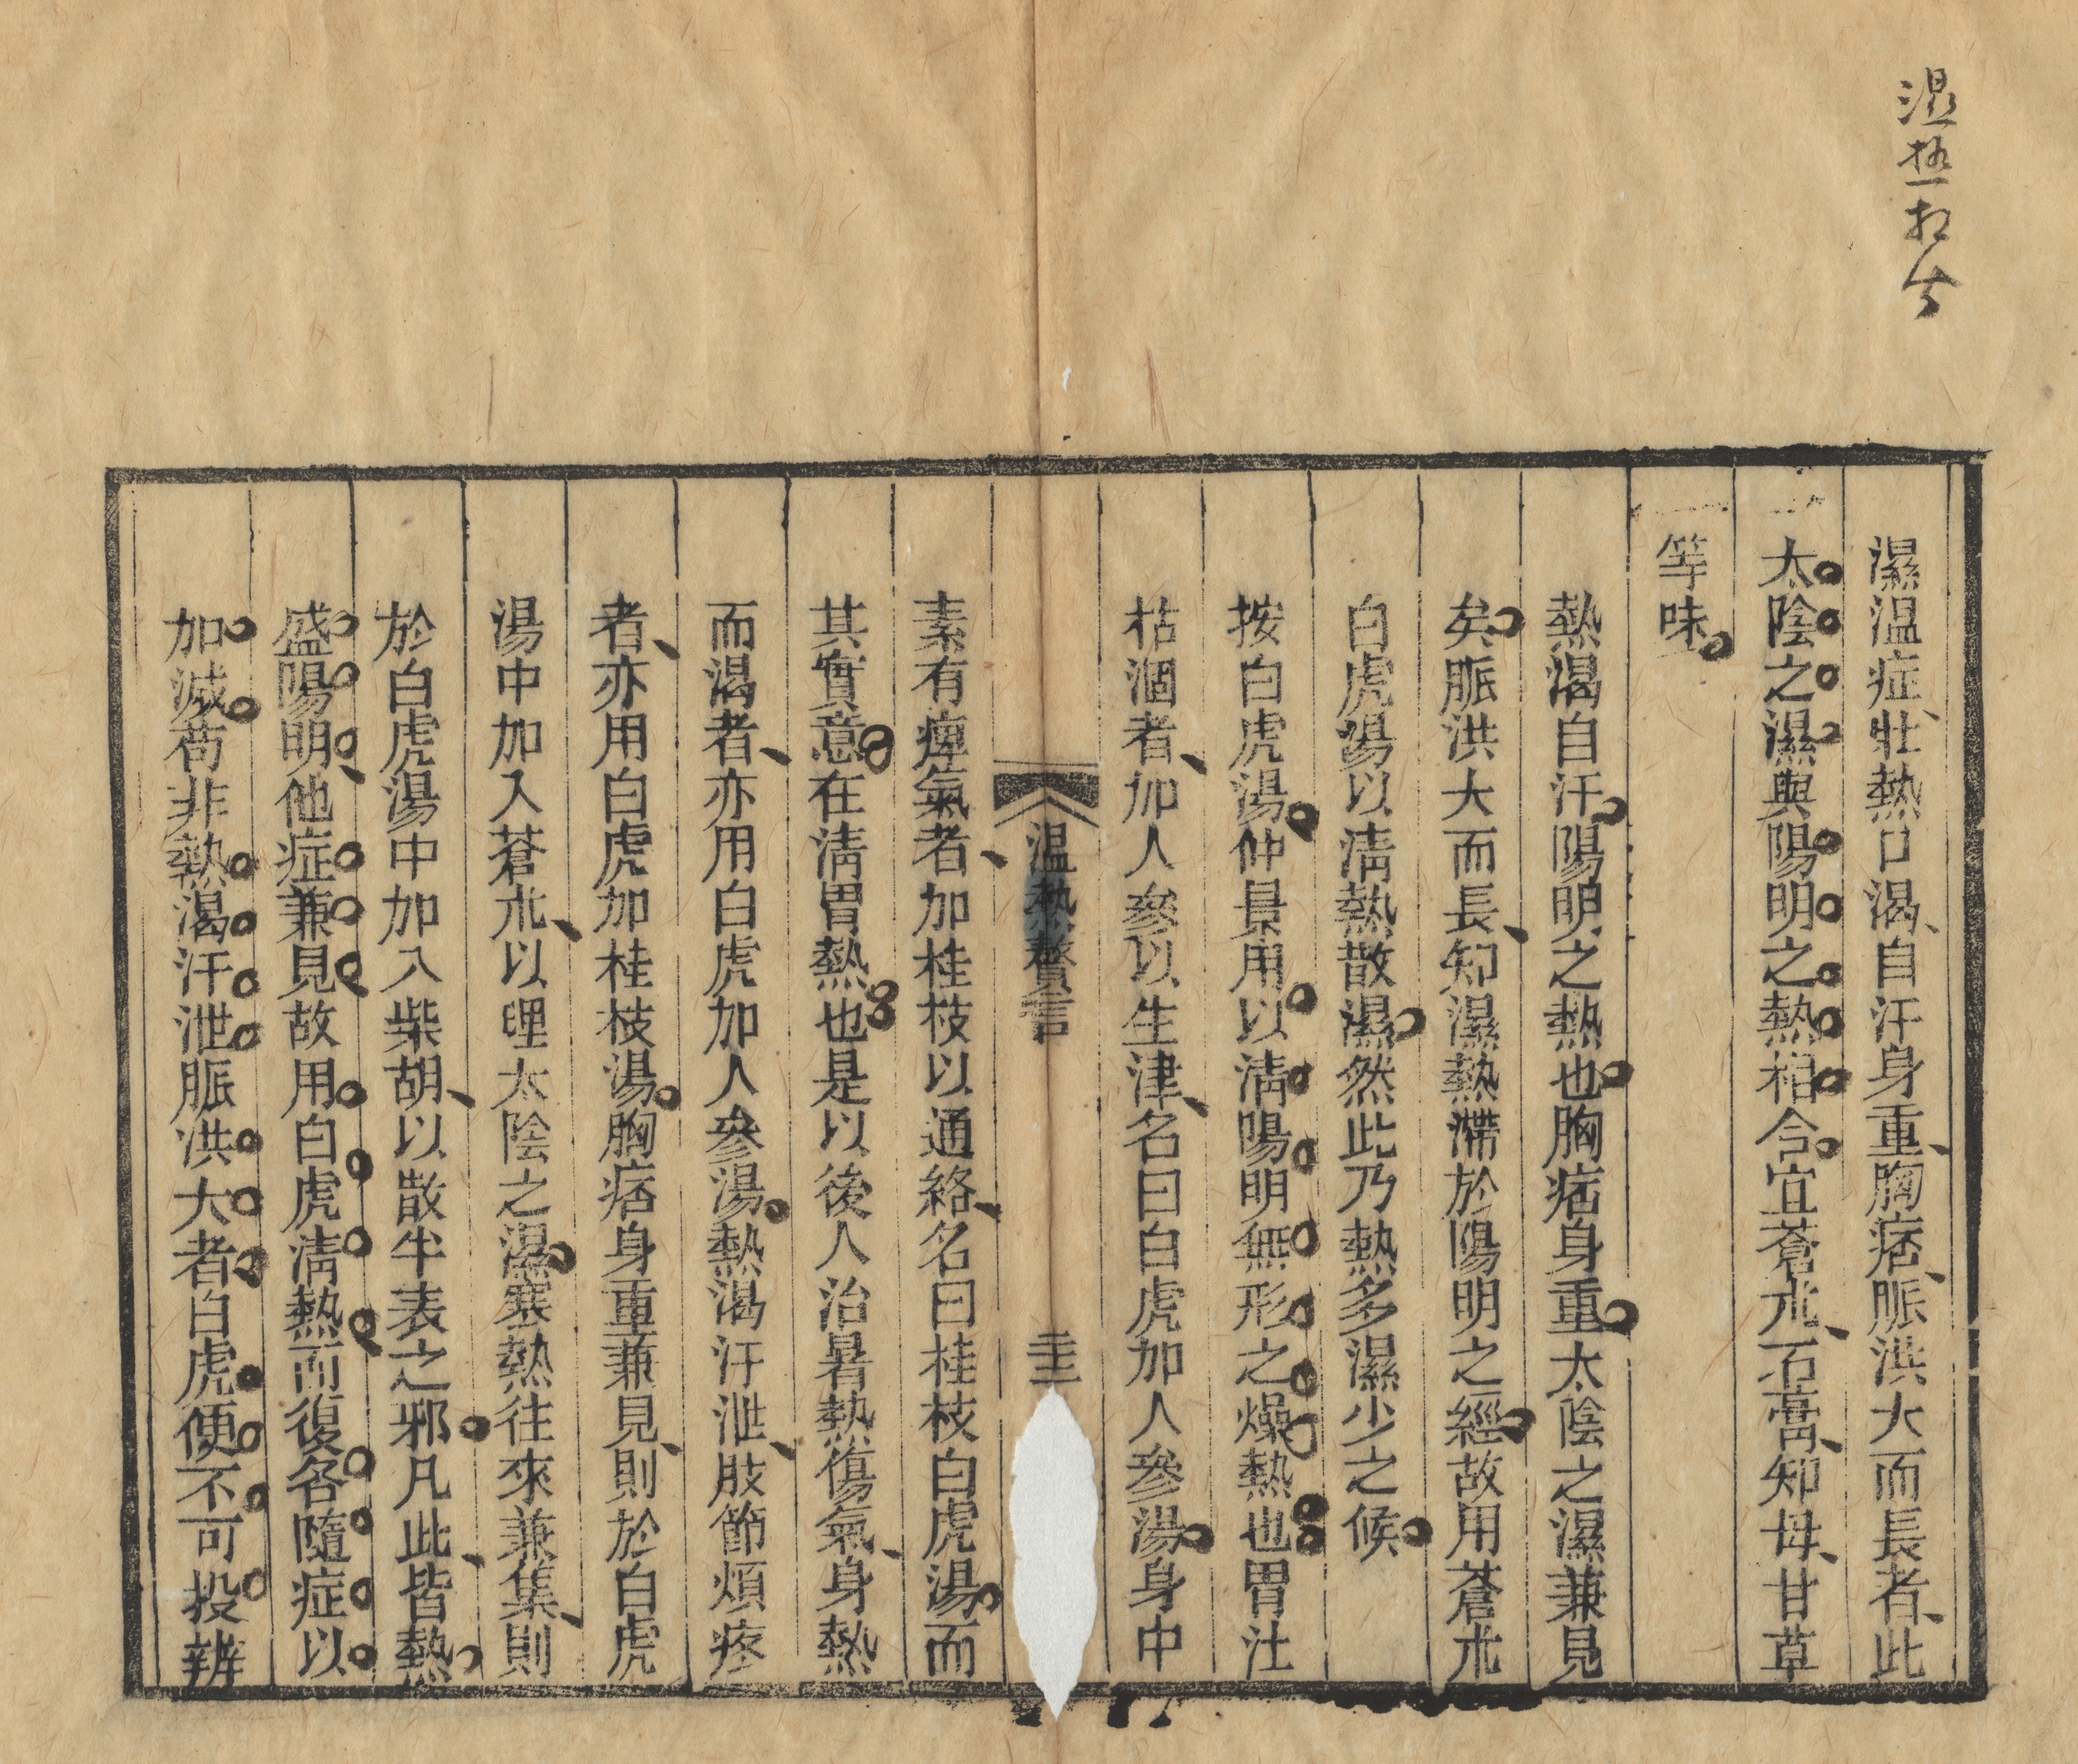 濕温症壯熱口渴自汗身重胸痞脈洪大而長者此
太陰之濕與陽明之熱相合宜蒼朮石膏知母甘草
等味
熱渴自汗陽明之熱也胸痞身重太陰之濕兼見
矣脈洪大而長知濕熱滯於陽明之經故用蒼朮
白虎湯以清熱散濕然此乃熱多濕少之候
按白虎湯仲景用以清陽明無形之燥熱也胃汁
枯涸者加人參以生津名曰白虎加人參湯身中
温熱贅言
素有痺氣者加桂枝以通絡名曰桂枝白虎湯而
其實意在清胃熱也是以後人治暑熱傷氣身熱
而渴者亦用白虎加人參湯熱渴汗泄肢節煩疼
者亦用白虎加桂枝湯胸痞身重兼見則於白虎
湯中加入蒼朮以理太陰之濕寒熱往來兼集則
於白虎湯中加入柴胡以散半表之邪凡此皆熱
盛陽明他症兼見故用白虎清熱而復各隨症以
加減苟非熱渴汗泄脈洪大者白虎便不可投辨